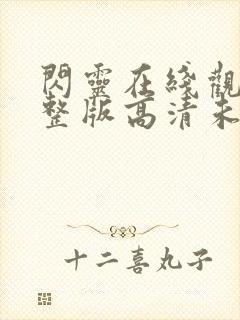 閃靈在綫觀
整版高清未
十二喜丸子